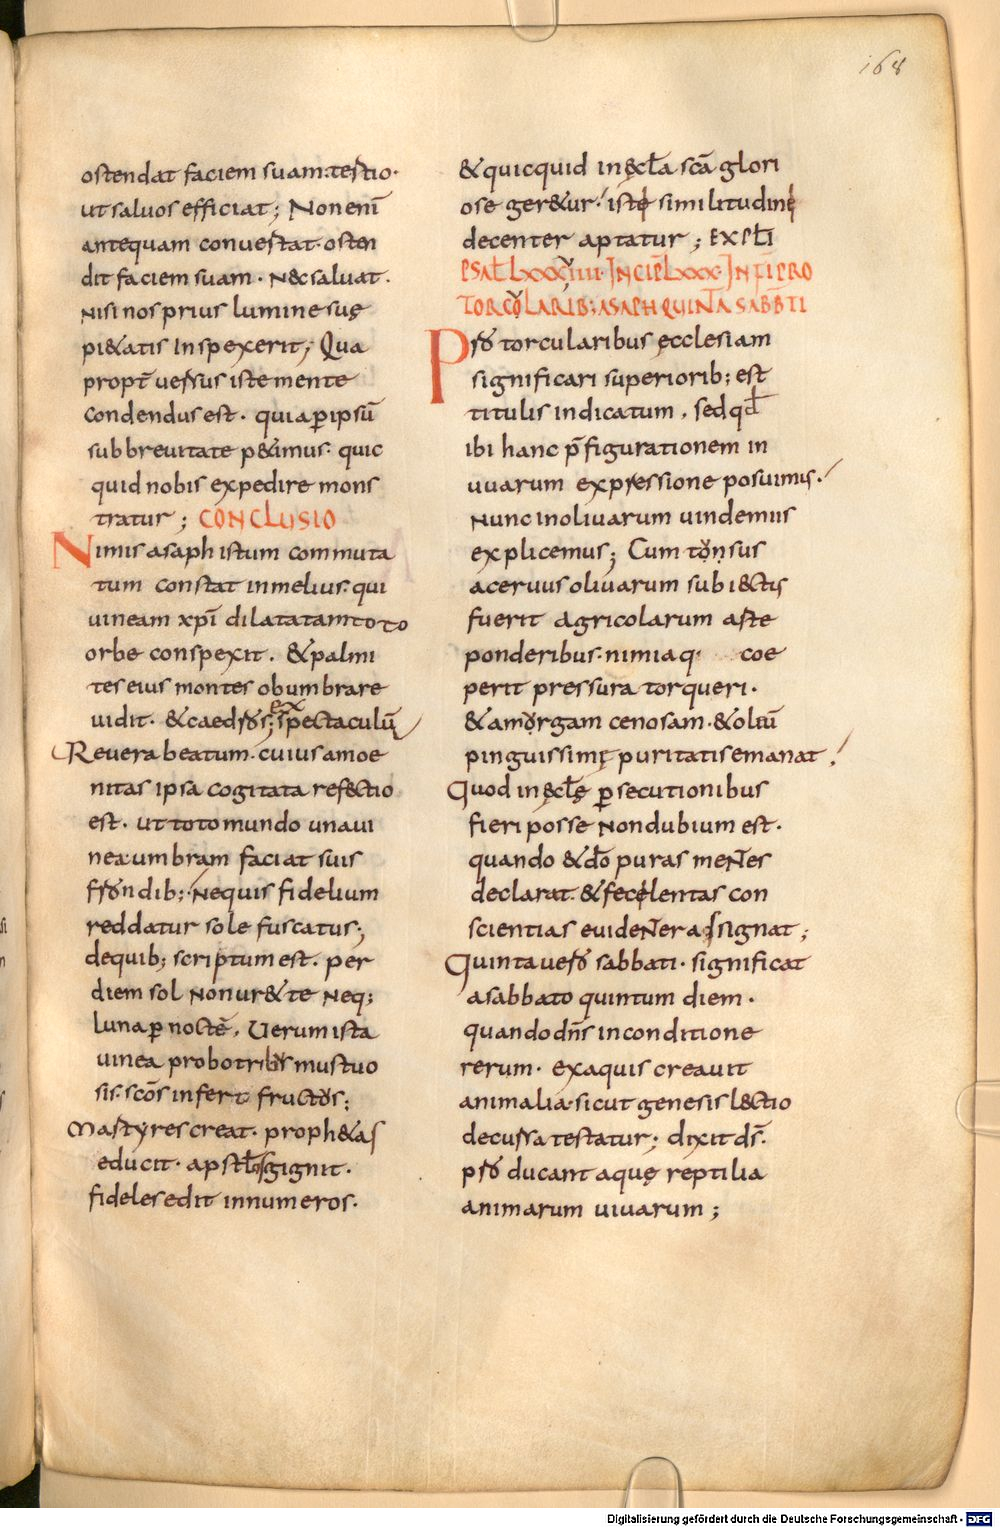 168
ostendat faciem suam. testio·
ut saluos efficiat; Non enī
antequam conuertat· osten
dit faciem suam· N&saluat·
nisi nos prius lumine suę
pi&atis inspexerit; Qua
propt̄ uersus iste mente
condendus est· quia p̲ ipsū
sub breuitate p&imus· quic
quid nobis expedire mons
tratur; CONCLUSIO
Nimis asaph istum commuta
tum constat in melius· qui
uineam xp̄i dilatatam toto
orbe conspexit. & palmi
tes eius montes obumbrare
uidit· & caedros; spectaculū
ex
Reuera beatum· cuius amoe
nitas ipsa cogitata refectio
est· ut toto mundo una ui
nea umbram faciat suis
frondib;· Nequis fidelium
reddatur sole fuscatus;
de quib; scriptum est· per
diem sol non ur& te neq;
luna p̲ noctē. Uerum ista
uinea pro botribus mustuo
sis· scōs infert fructus;
Martyres creat· proph&as
educit· apstl̄os gignit·
fideles edit innumeros·
& quicquid in ęcl̄a scā glori
ose ger&ur· istę similitudinę
decenter aptatur; EXPLĪ
PSAL̄ LXXVIIII· INCIP̄ LXXX· IN FĪ PRO
TORCULARIB; ASAPH QUINTA SABBTI
Pro torcularibus ęcclesiam
significari superiorib; est
titulis indicatum. sed qd̄
ibi hanc p̄figurationem in
uuarum expressione posuimus·
Nunc in oliuarum uindemiis
explicemus; Cum tonsus
aceruus oliuarum subiectis
fuerit agricolarum arte
ponderibus· nimiaq· coe
perit pressura torqueri·
& amorgam cenosam· & oleū
pinguissimę puritatis emanat
Quod in ęcl̄ę p̲secutionibus
fieri posse non dubium est·
quando & dō puras mentes
declarat· & feculentas con
scientias euidenter assignat;
Quinta uero sabbati· significat
a sabbato quintum diem·
quando dn̄s in conditione
rerum· ex aquis creauit
animalia· sicut genesis lectio
decursa testatur; dixit dś·
producant aquę reptilia
animarum uiuarum;
Digitalisierung gefördert durch die Deutsche Forschungsgemeinschaft - DFG